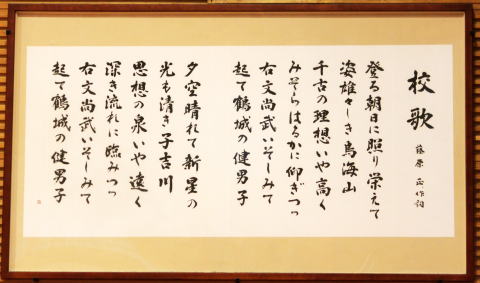 校歌
藤原 正 作詞
登る朝日に照り栄えて
姿雄々しき鳥海山
千古の理想いや高く
みそらはるかに仰ぎつつ
右文尚武いそしみて
起て鶴城の健男子
夕空晴れて新星の
光も清き子吉川
思想の泉いや遠く
深き流れに臨みつつ
右文尚武いそしみて
起て鶴城の健男子